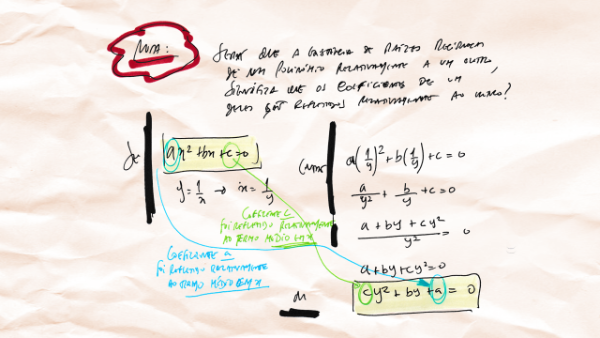 NOTA:
SERÁ QUE A EXISTÊNCIA DE RAÍZES RECÍPROCAS
DE UM POLINÓMIO RELATIVAMENTE A UM OUTRO,
SIGNIFICA QUE OS COEFICIENTES DE UM
DELES SÃO REFLETIDOS RELATIVAMENTE AO OUTRO?
ax² + bx + c = 0
y = 1/x → x = 1/y
a(1/y)² + b(1/y) + c = 0
a/y² + b/y + c = 0
(a + by + cy²)/y² = 0
a + by + cy² = 0
cy² + by + a = 0
COEFICIENTE C
FOI REFLETIDO RELATIVAMENTE
AO TERMO MÉDIO EM X
COEFICIENTE a
FOI REFLETIDO RELATIVAMENTE
AO TERMO MÉDIO EM X